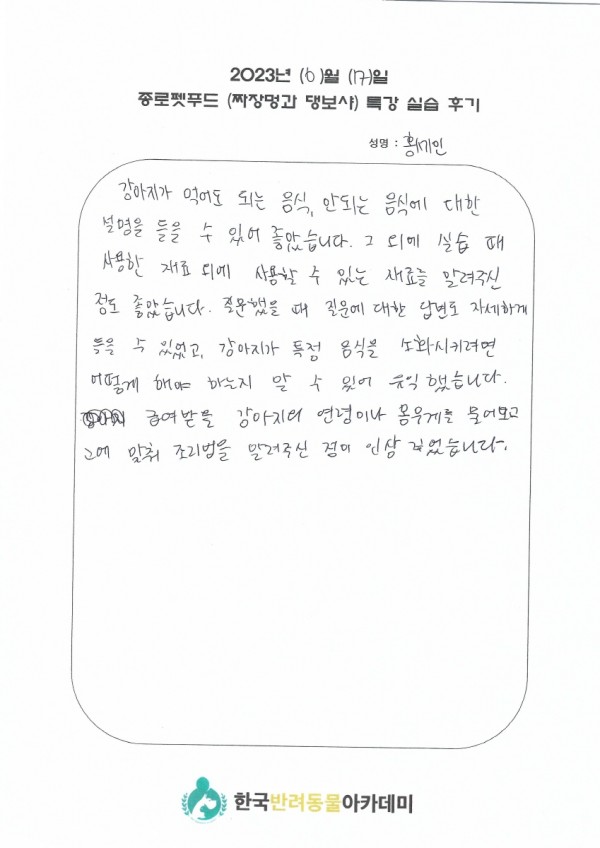 2023년 (6)월 (17)일
종로펫푸드 (짜장멍과 댕보샤) 특강 실습 후기
성명 : 황세인
강아지가 먹어도 되는 음식, 안되는 음식에 대한
설명을 들을 수 있어 좋았습니다. 그 외에 실습 때
사용한 재료 외에 사용할 수 있는 재료를 알려주신
점도 좋았습니다. 질문했을 때 질문에 대한 답변도 자세하게
들을 수 있었고, 강아지가 특정 음식을 소화시키려면
어떻게 해야 하는지 알 수 있어 유익했습니다.
급여받을 강아지의 연령이나 몸무게를 물어보고
그에 맞춰 조리법을 알려주신 점이 인상 깊었습니다.
한국반려동물아카데미